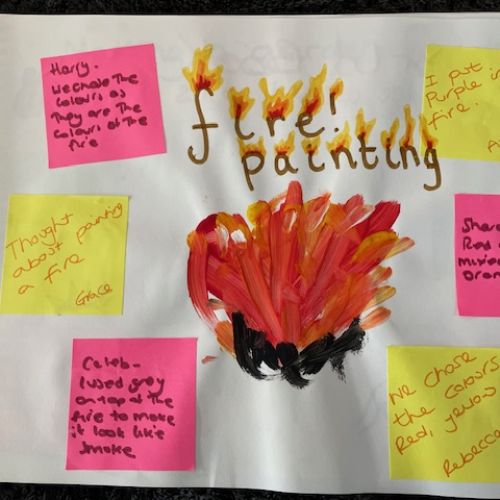 Harry.
We chose the
colours as
they are the
colours of the
fire
fire!
painting
I put
Purple in
fire.
A
Thought
about painting
a fire
Grace
Red
mixed
Caleb -
I used grey
on top of the
fire to make
it look like
smoke
We chose
the colours
Red, yellow
Rebecca